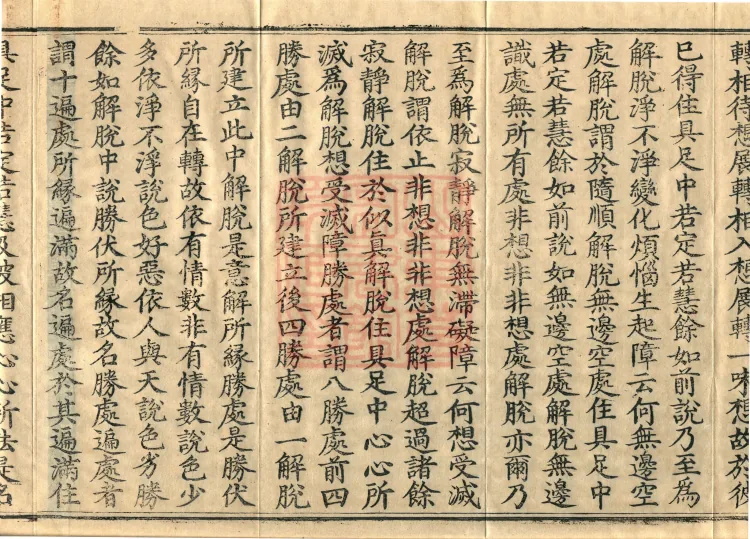 轉相待想展轉相入想展轉一味想故於彼
巳得住具足中若定若慧餘如前說乃至為
解脫淨不淨變化煩惱生起障云何無邊空
處解脫謂於隨順解脫無邊空處住具足中
若定若慧餘如前說如無邊空處解脫無邊
識處無所有處非想非非想處解脫亦爾乃
至為解脫寂靜解脫無滯礙障云何想受滅
解脫謂依止非想非非想處解脫超過諸餘
寂靜解脫住於似真解脫住具足中心心所
滅為解脫想受滅障勝處者謂八勝處前四
勝處由二解脫所建立後四勝處由一解脫
所建立此中解脫是意解所緣勝處是勝伏
所緣自在轉故依有情數非有情數說色少
多依淨不淨說色好惡依人與天說色劣勝
餘如解脫中說勝伏所緣故名勝處遍處者
謂十遍處所緣遍滿故名遍處於其遍滿住
具足中若定若慧及彼相應心心所法是名